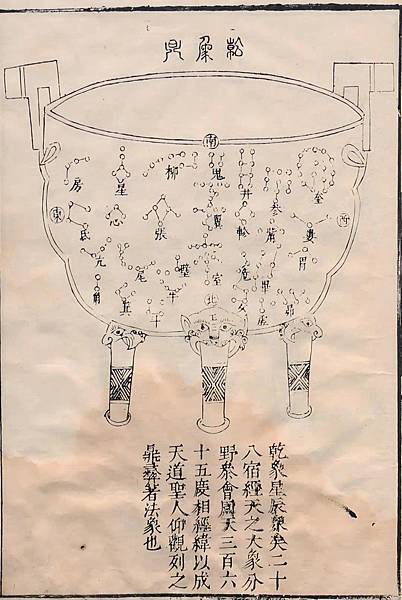 乾象鼎
南
房
星
柳
鬼
井
參
奎
東
氐
心
張
翼
軫
觜
婁
西
亢
尾
壁
室
危
畢
胃
角
箕
斗
牛
北
女
虛
昴
乾象星辰粲矣二十
八宿經天之大象分
野叅會周天三百六
十五度相經緯以成
天道聖人仰觀列之
鼎彝著法象也